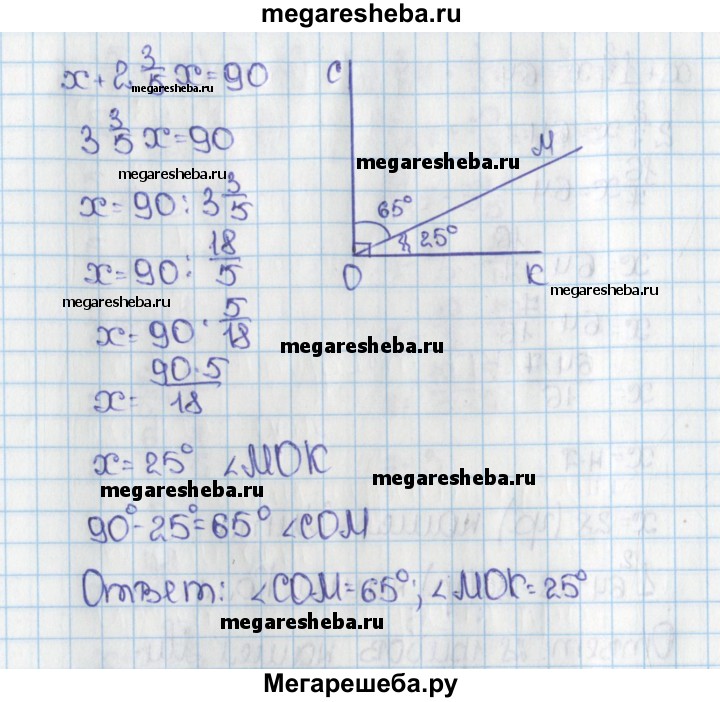 megaresheba.ru
x + 2 3/5 x = 90
megaresheba.ru
3 3/5 x = 90
megaresheba.ru
x = 90 : 3 3/5
x = 90 : 18/5
megaresheba.ru
x = 90 · 5/18
x = 90·5/18
x = 25° ∠МОК
megaresheba.ru
90° - 25° = 65° ∠СОМ
Ответ: ∠СОМ = 65°; ∠МОК = 25°
megaresheba.ru
С
М
megaresheba.ru
65°
25°
О
К
megaresheba.ru
megaresheba.ru
megaresheba.ru
Мегарешеба.ру